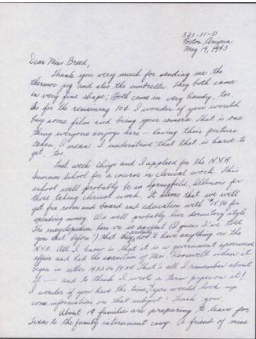 322-11-D
Poston, Arizona
May 19, 1943
Dear Miss Breed,
Thank you very much for sending me the
thermos jug and also the umbrella. They both came
in very fine shape. Both come in very handy, too.
As for the remaining 10¢ I wonder if you would
buy some film and bring your camera. That is one
thing everyone enjoys here — having their picture
taken I mean. I understand that that is hard to
get, too.
Last week things and I applied for the N.Y.A.
Summer School for a course in clerical work. This
school will probably be in Springfield, Illinois for
those taking clerical work. It seems that we will
get free room and board and education with
spending money. We will probably live dormitory style.
The encyclopedias here are so
you that before) that they don't have anything on the
N.Y.A. All I know is that it is a government sponsored
affair and had the attention of Mrs. Roosevelt when it
began in either 1933 or 1934. That's all I remember about
it — and to think I wrote a term paper on it!
I wonder if you have the time, you would look up
some information on that subject. Thank you.
About 19 families are preparing to leave for
to the family internment camp. A friend of mine